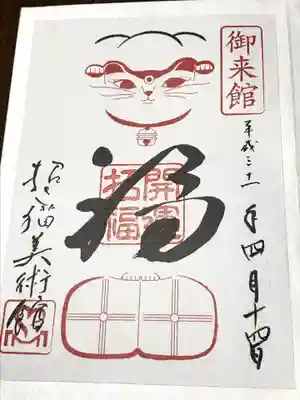 御来館
平成三十一年四月十四日
福
開運
招福
招猫美術館